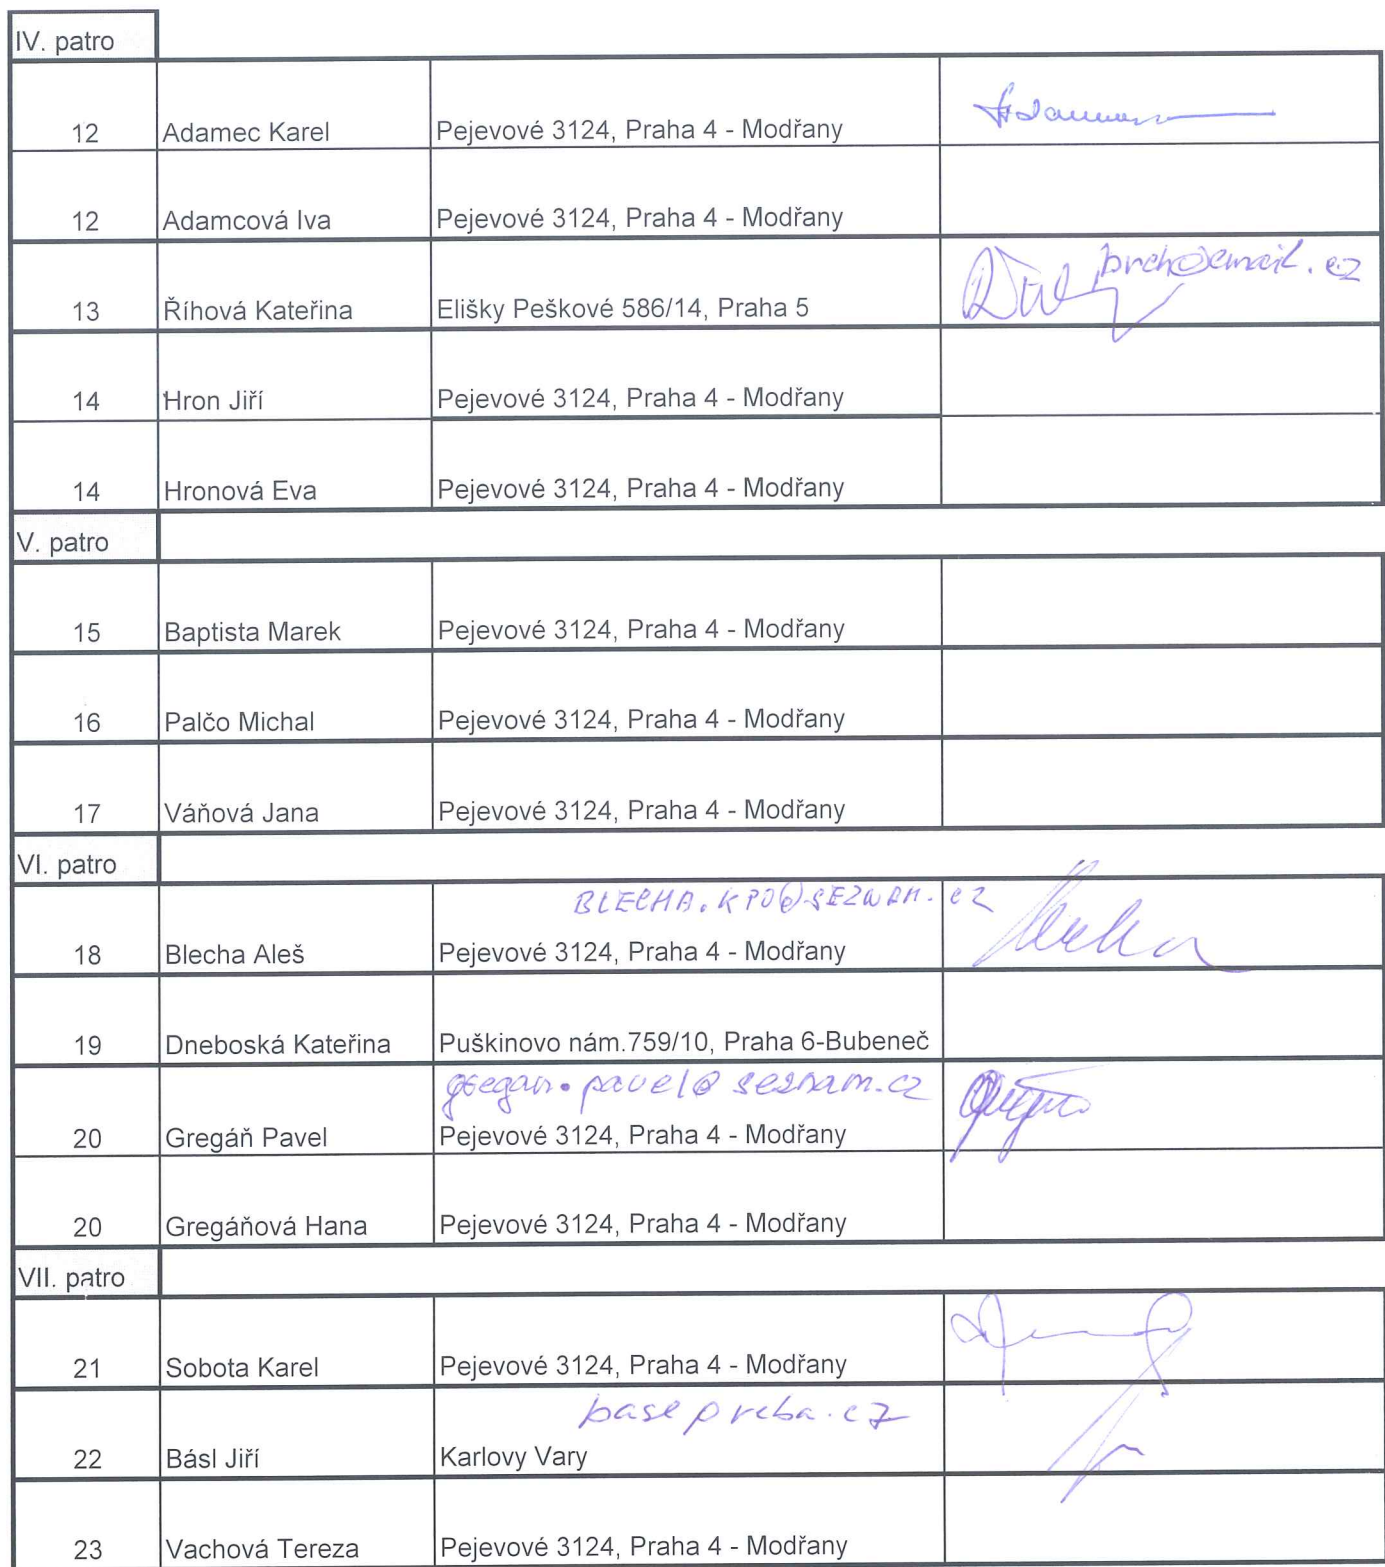 IV. patro
12 Adamec Karel Pejevové 3124, Praha 4 - Modřany
12 Adamcová Iva Pejevové 3124, Praha 4 - Modřany
brch@email.cz
13 Říhová Kateřina Elišky Peškové 586/14, Praha 5
14 Hron Jiří Pejevové 3124, Praha 4 - Modřany
14 Hronová Eva Pejevové 3124, Praha 4 - Modřany
V. patro
15 Baptista Marek Pejevové 3124, Praha 4 - Modřany
16 Palčo Michal Pejevové 3124, Praha 4 - Modřany
17 Váňová Jana Pejevové 3124, Praha 4 - Modřany
VI. patro
BLECHA.KPO@SEZNAM.CZ
18 Blecha Aleš Pejevové 3124, Praha 4 - Modřany
19 Dneboská Kateřina Puškinovo nám.759/10, Praha 6-Bubeneč
gregan.pavel@seznam.cz
20 Gregáň Pavel Pejevové 3124, Praha 4 - Modřany
20 Gregáňová Hana Pejevové 3124, Praha 4 - Modřany
VII. patro
21 Sobota Karel Pejevové 3124, Praha 4 - Modřany
22 Básl Jiří Karlovy Vary
23 Vachová Tereza Pejevové 3124, Praha 4 - Modřany